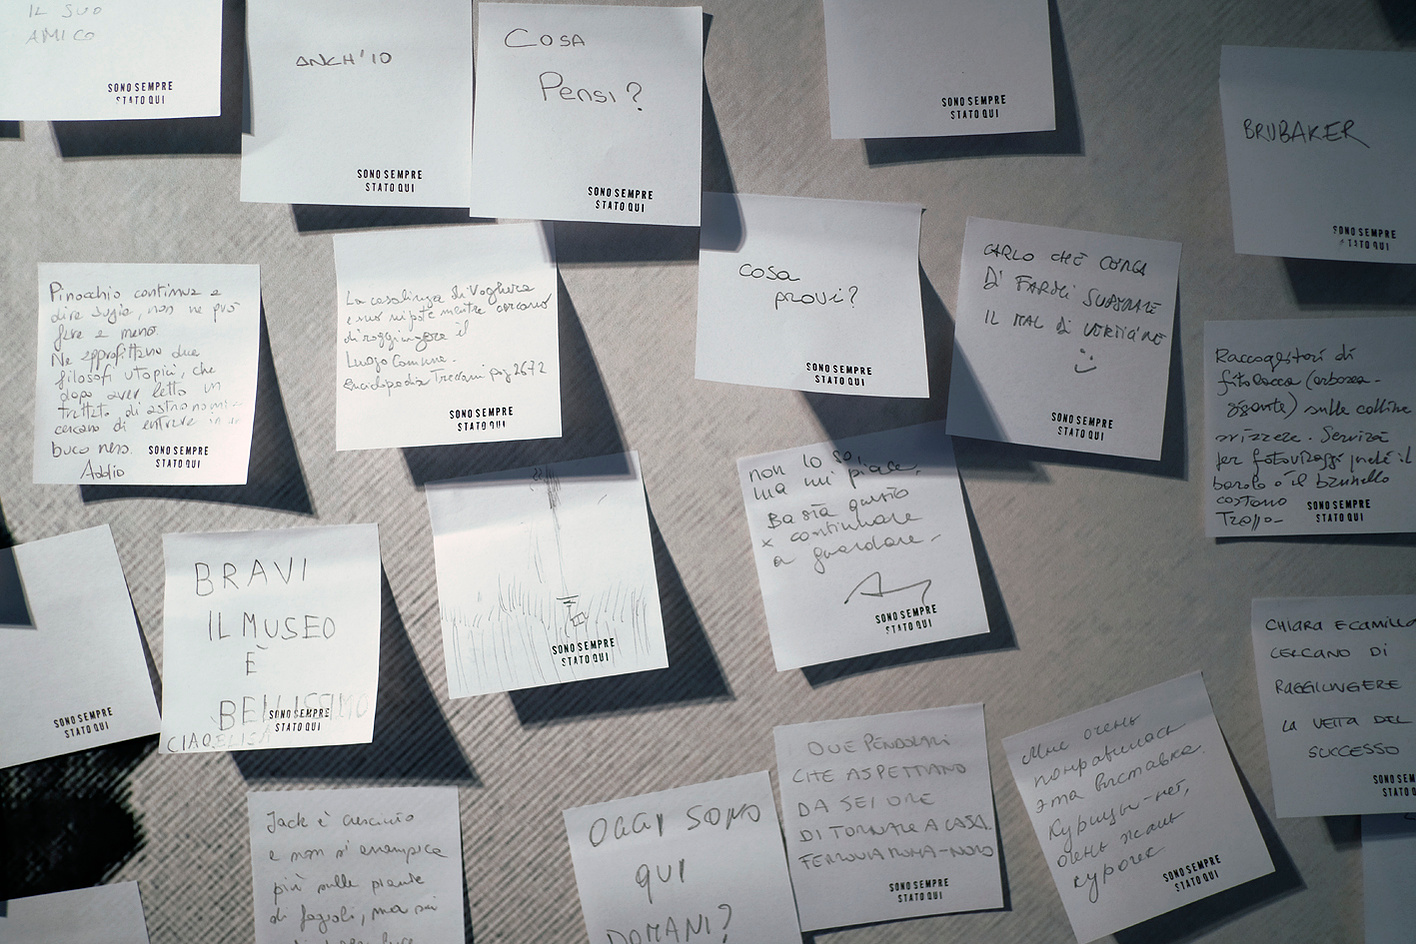 IL SUO
AMICO
SONO SEMPRE
STATO QUI
ANCH'IO
SONO SEMPRE
STATO QUI
COSA
Pensi?
SONO SEMPRE
STATO QUI
SONO SEMPRE
STATO QUI
BRUBAKER
SONO SEMPRE
STATO QUI
Pinocchio continua a
dire bugie, non ne può
fare a meno.
Ne approfittano due
filosofi utopici, che
dopo aver letto un
trattato di astronomia
cercano di entrare in un
buco nero.
Addio
SONO SEMPRE
STATO QUI
La casalinga di Voghera
e suo nipote mentre cercano
di raggiungere il
Luogo Comune.
Enciclopedia Treccani pag 2672
SONO SEMPRE
STATO QUI
cosa
provi?
SONO SEMPRE
STATO QUI
CARLO CHE CERCA
DI FARMI SUPERARE
IL MAL DI VERTIGINE
SONO SEMPRE
STATO QUI
Raccoglitori di
fitolacca (arborea-
gigante) sulle colline
svizzere. Servirà
per fotoviraggi perché il
barolo o il brunello
costano
Troppo-
SONO SEMPRE
STATO QUI
SONO SEMPRE
STATO QUI
BRAVI
IL MUSEO
È
BELLISSIMO
CIAO ELISA
SONO SEMPRE
STATO QUI
SONO SEMPRE
STATO QUI
non lo so,
ma mi piace.
Basta questo
x continuare
a guardare.
SONO SEMPRE
STATO QUI
CHIARA E CAMILLA
CERCANO DI
RAGGIUNGERE
LA VETTA DEL
SUCCESSO
SONO SEM
STATO Q
Jack è cresciuto
e non si arrampica
più sulle piante
di fagioli, ma sui
OGGI SONO
QUI
DOMANI?
DUE PENDOLARI
CHE ASPETTANO
DA SEI ORE
DI TORNARE A CASA.
FERROVIA ROMA-NORD
SONO SEMPRE
STATO QUI
Мне очень
понравилась
эта выставка.
Курицы-нет,
очень жаль
курочек
SONO SEMPRE
STATO QUI